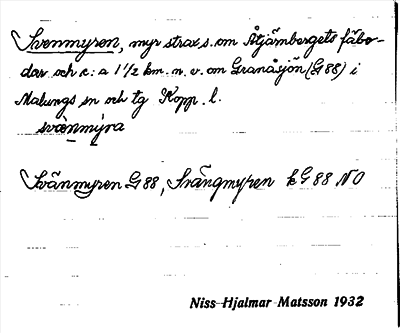 Svenmyren, myr strax s. om Åtjärnbergets fäbo-
dar och c:a 1 1/2 km. n. v. om Granåsjön (G 88) i
Malungs sn och tg Kopp. l.
svænmýra
Svänmyren G 88, Svängmyren k G 88 NO
Niss Hjalmar Matsson 1932